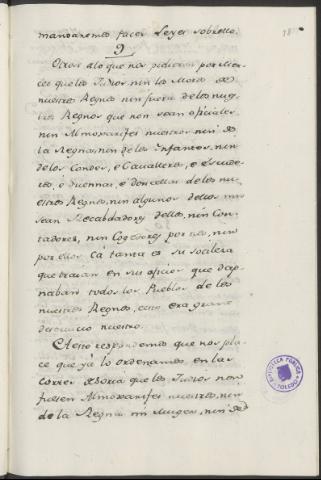 mandaremos facer Leyes sobrello.
9
Otrosi alo que nos pidieron por Mer-
ced que los Judios nin los Moros de
nuestro Regno nin fuera delos nues-
tros Regnos que non sean oficiales,
nin Almoxarifes nuestros nin de
la Regna, nin delos Infantes, nin
delos Condes, é Cavalleros, é Escude-
ros, é Duennas, é Doncellas delos nu-
estros Regnos, nin algunos dellos nin
sean Recabdadores dellos, nin Con-
tadores, nin Cogedores por nos, nin
por ellos Ca tanta es su
que trahian en sus oficios que dap-
naban todos los Pueblos de los
nuestros Regnos, esto era grave
deservicio nuestro.
A esto respondemos que nos pla-
ce que yá lo ordenamos en las
Cortes de Soria que los Judios non
fuesen Almoxarifes nuestros, nin
de la Regna mi Muger, nin de
BIBLIOTECA PUBLICA
TOLEDO